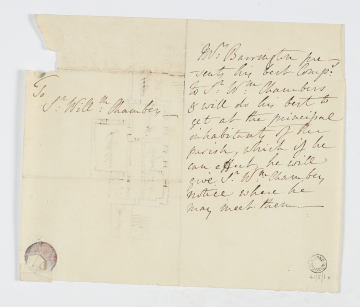 To
Sr. Willm. Chambers
Mr. Barrington pre-
sents his best Compts
to Sr. Wm Chambers
& will do his best to
get at the principal
inhabitants of his
parish, which if he
can effect he will
give Sr. Wm Chambers
notice where he
may meet them